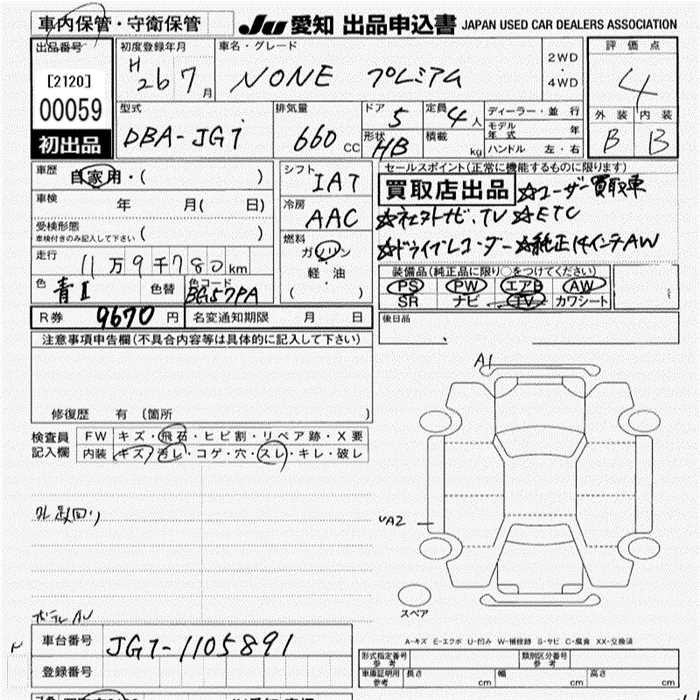 車内保管・守衛保管
JU 愛知 出品申込書 JAPAN USED CAR DEALERS ASSOCIATION
出品番号
[2120]
00059
初出品
初度登録年月
H 26 7月
車名・グレード
NONE プレミアム
2WD
・
4WD
評価点
4
外装 内装
B B
型式
DBA-JG1
排気量
660 CC
ドア
5
定員
4人
形状
HB
積載
kg
ディーラー・並行
モデル年式 年
ハンドル 左・右
車歴
自家用・( )
車検
年 月( 日)
受検形態
車検付きのみ記入して下さい ( )
走行
11万9千780km
色
青II
色替
色コード
BG57PA
シフト
IAT
冷房
AAC
燃料
ガソリン
軽・油
( )
セールスポイント(正常に機能するものに限ります)
買取店出品 ☆ユーザー買取車
☆ETC
☆ドライブレコーダー ☆純正14インチAW
装備品(純正品に限り○をつけてください)
PS PW エアB AW
SR ナビ TV カワシート
後日品
R券 9670円 名変通知期限 月 日
注意事項申告欄(不具合内容等は具体的に記入して下さい)
修復歴 有 (箇所 )
検査員記入欄
FW キズ・飛石・ヒビ割・リペア跡・X要
内装 キズ・汚レ・コゲ・穴・スレ・キレ・破レ
A1
UA2
スペア
A-キズ E-エクボ U-凹み W-補修跡 S-サビ C-腐食 XX-交換済
車台番号 JG1-1105891
登録番号
型式指定番号
参考
類別区分番号
参考
車庫証明用
参考
長さ cm 幅 cm 高さ cm